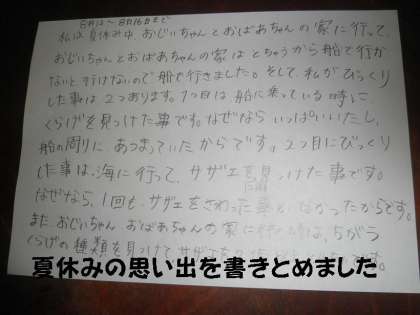 8月12〜8月16日まで
私は夏休み中、おじいちゃんとおばあちゃんの家に行って、
おじいちゃんとおばあちゃんの家はとちゅうから船で行か
ないと行けないので船で行きました。そして、私がびっくり
した事は2つあります。1つ目は船に乗っている時に
くらげを見つけた事です。なぜなら いっぱいいたし、
船の周りに あつまっていたからです。2つ目にびっくり
した事は、海に行って、サザエを見つけた事です。
なぜなら、1回も、サザエをさわった事がなかったからです。
また、おじいちゃん おばあちゃんの家に 時は、ちがう
くらげの種類を見つけて、サザエを
夏休みの思い出を書きとめました